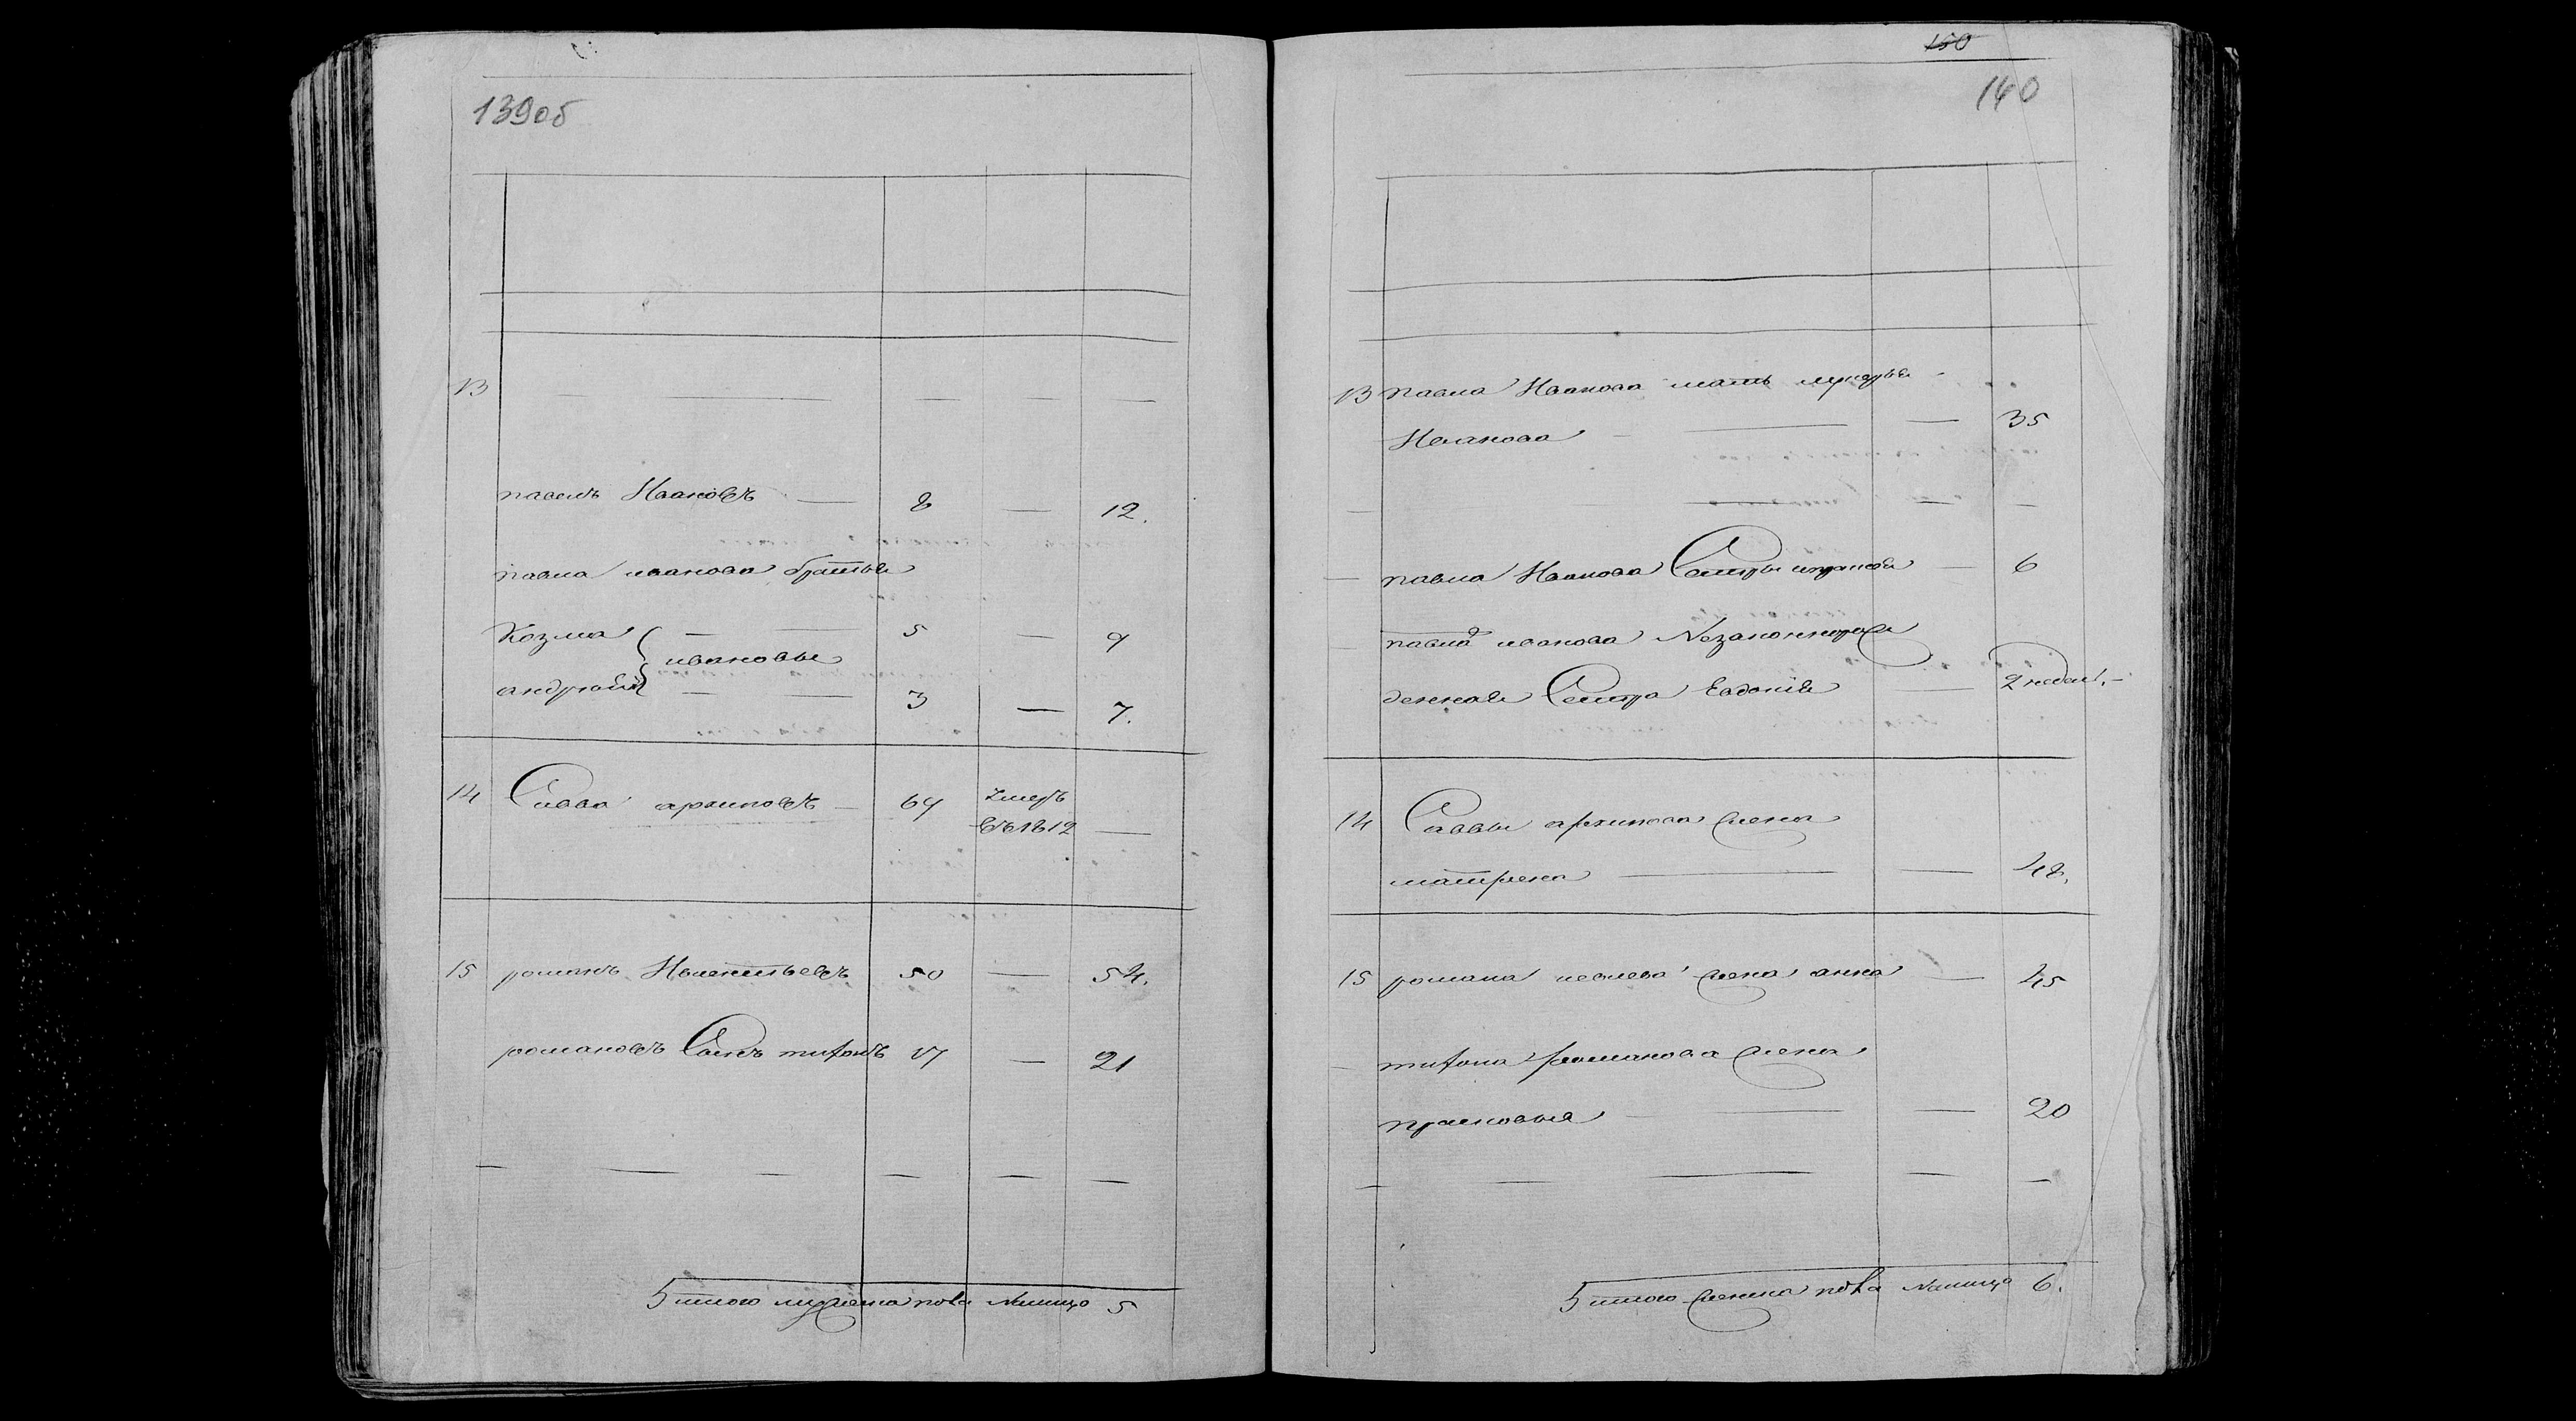 139об
13
павелъ Ивановъ — 8 — 12.
павла иванова братья
Козма — 5 — 9
ивановы
андрюей — 3 — 7.
14 Савва архиповъ — 69 умеръ
въ 1812 —
15 романъ Иевлевъ 50 — 54.
романовъ Сынъ тихонъ 17 — 21
итого мужеска пола Налицо 5
150
140
13 павла Иванова мать лукерья
Иванова — — 35
павла Иванова Сестры — 6
павла иванова Незаконнорож
денная Сестра Евдокия — 2 недел.
14 Саввы архипова жена
матрена — — 48.
15 романа иевлева жена анна — 45
тихона романова жена
прасковья — — 20
итого женска пола Налицо 6.